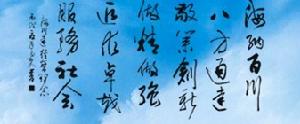 海纳百川
八方通达
敬业创新
做精做强
追求卓越
服务社会